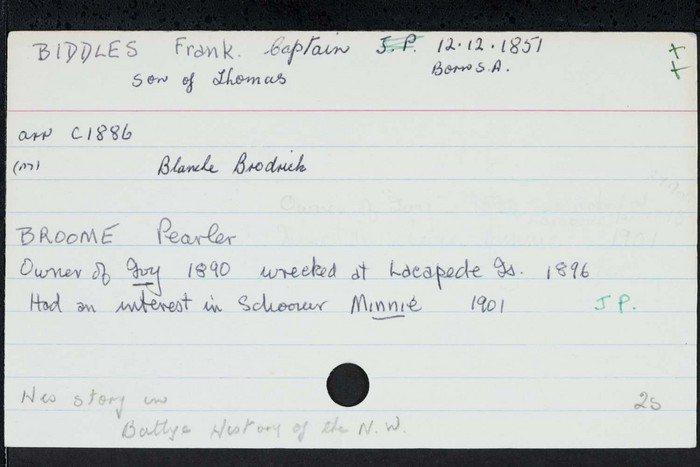 BIDDLES Frank. Captain J.P. 12.12.1851
son of Thomas Born S.A.
arr C1886
(m) Blanche Brodrick
BROOME Pearler
Owner of Ivy 1890 wrecked at Lacapede Is. 1896
Had an interest in Schooner Minnie 1901 J P.
His story in 25
Battye History of the N.W.